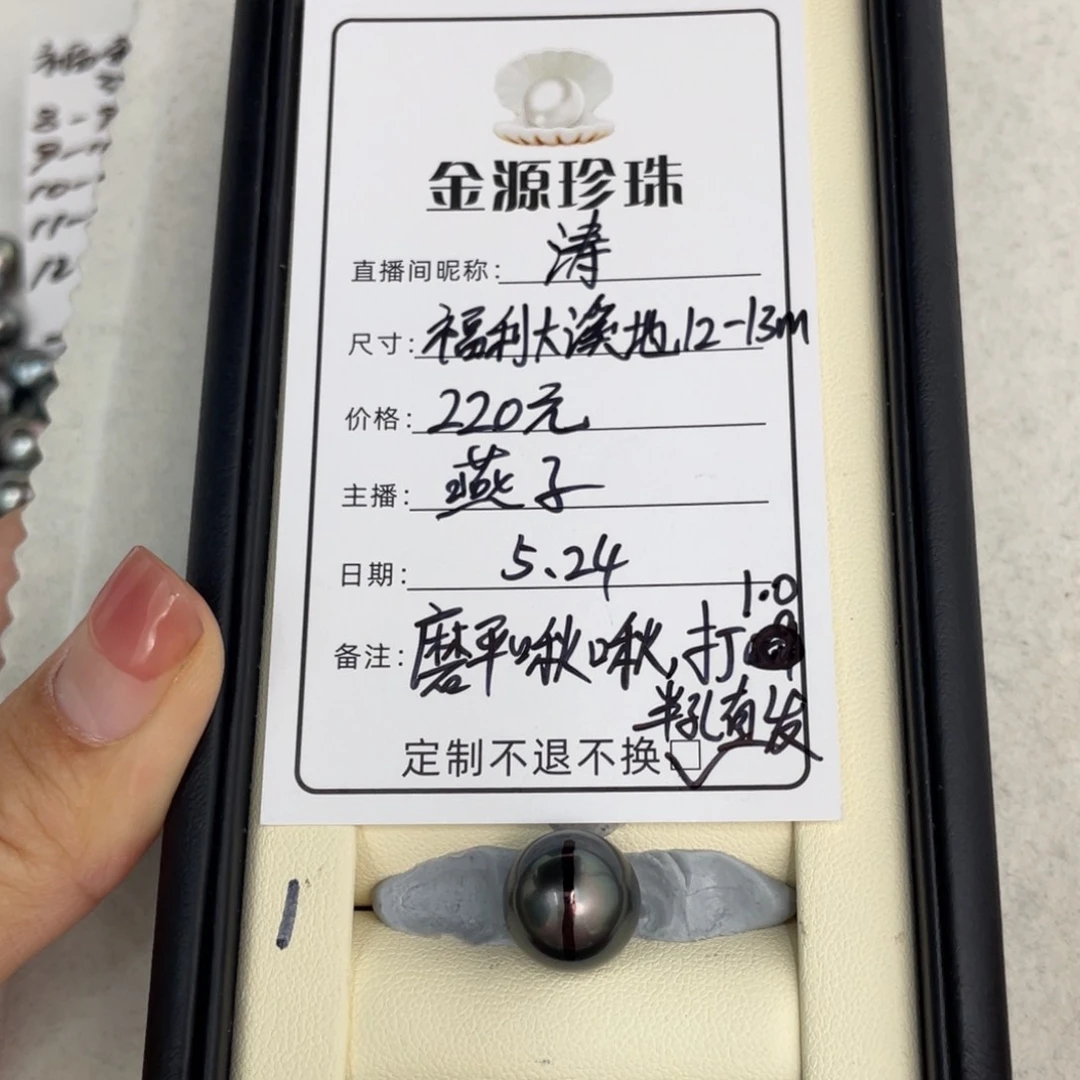 8-9
10-
11-
12
金源珍珠
直播间昵称: 涛
尺寸: 福利大溪地12-13m
价格: 220元
主播: 燕子
日期: 5.24
1.0
备注: 磨平啾啾,打
半孔直发
定制不退不换
1